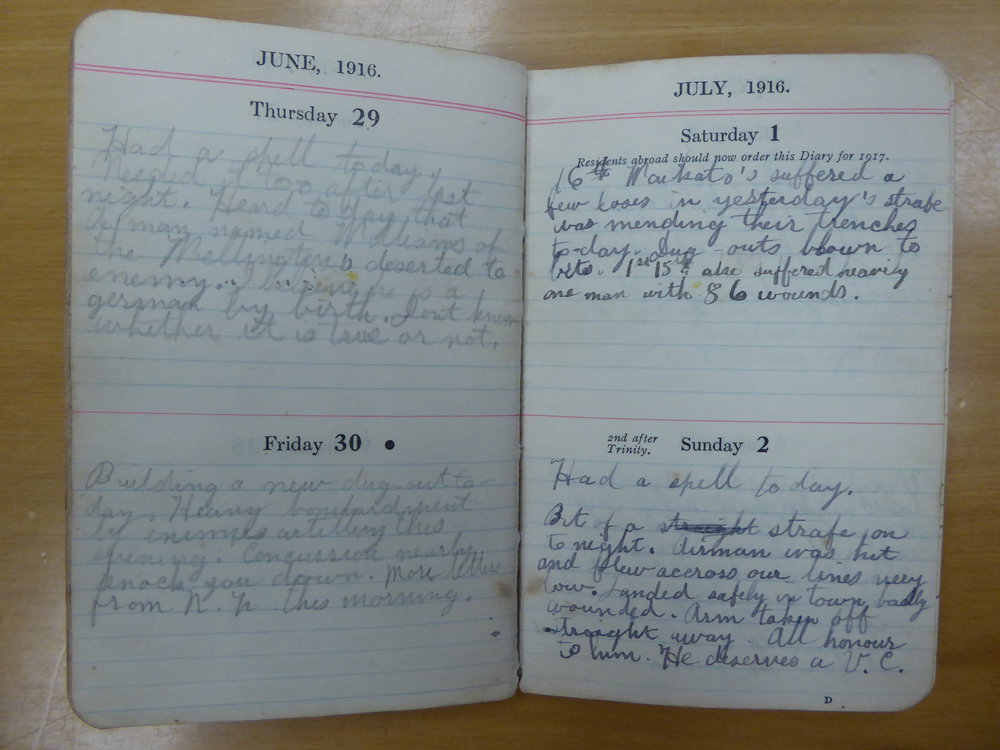 JUNE, 1916.
Thursday 29
Had a spell today.
Needed it too after last
night. Heard to day that
a man named Williams of
the Wellingtons deserted to
enemy. I is a
german by birth. Dont know
whether it is true or not.
Friday 30
Building a new dug-out to-
day. Heavy bombardment
by enimies artillery this
evening. Concussion nearly
knock you down. More letters
from N. this morning.
JULY, 1916.
Saturday 1
Residents abroad should now order this Diary for 1917.
16th Waikato's suffered a
few loses in yesterday's strafe
was mending their trenches
to-day. Dug-outs blown to
bits. 1st 15th also suffered heavily
one man with 86 wounds.
2nd after
Trinity.
Sunday 2
Had a spell to day.
Bit of a straight strafe on
to night. Airman was hit
and flew accross our lines very
low. Landed safely in town badly
wounded. Arm taken off
straight away. All honour
to him. He deserves a V.C.
D